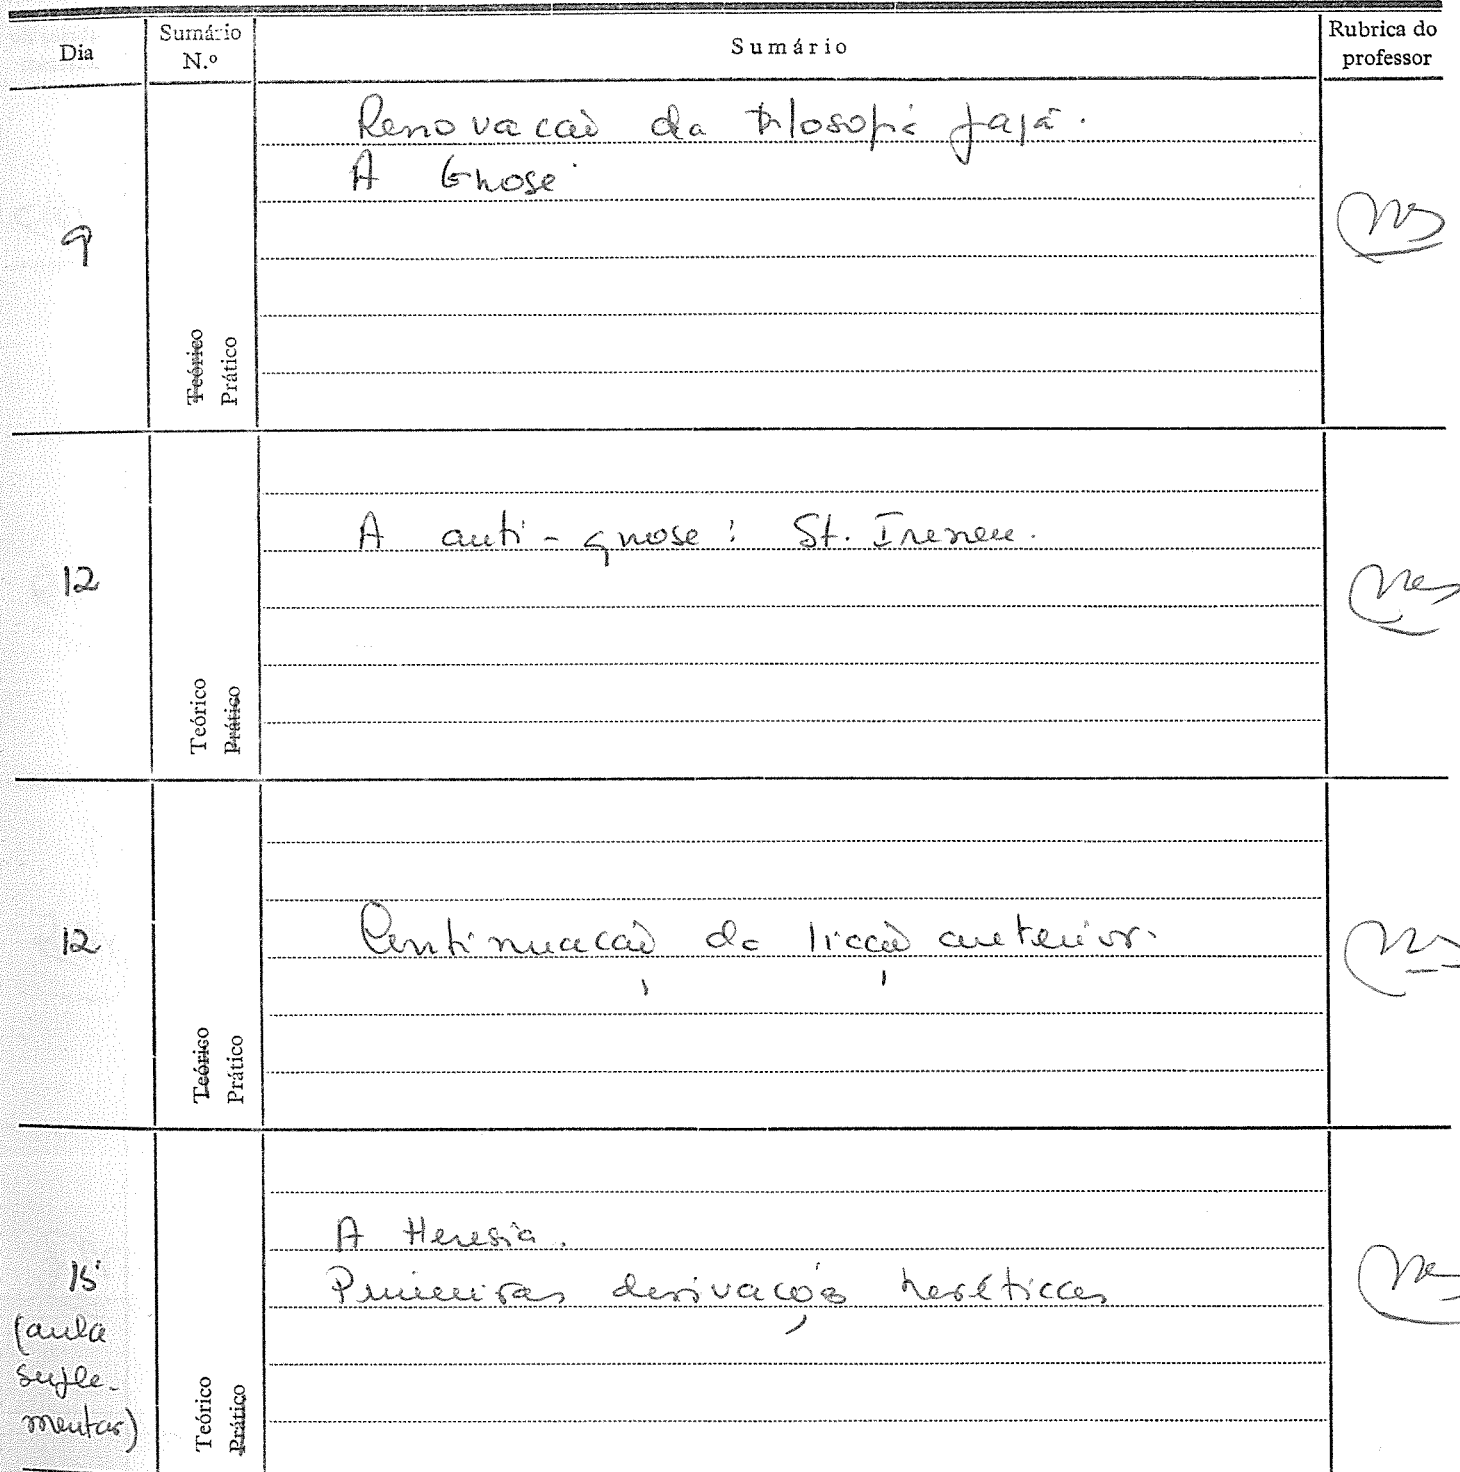 Dia
Sumário
N.º
Sumário
Rubrica do
professor
9
Teórico
Prático
Renovação da filosofia pagã.
A Gnose
12
Teórico
Prático
A anti-gnose: St. Ireneu.
12
Teórico
Prático
Continuação da lição anterior.
15
(aula
suple-
mentar)
Teórico
Prático
A Heresia.
Primeiras derivações heréticas